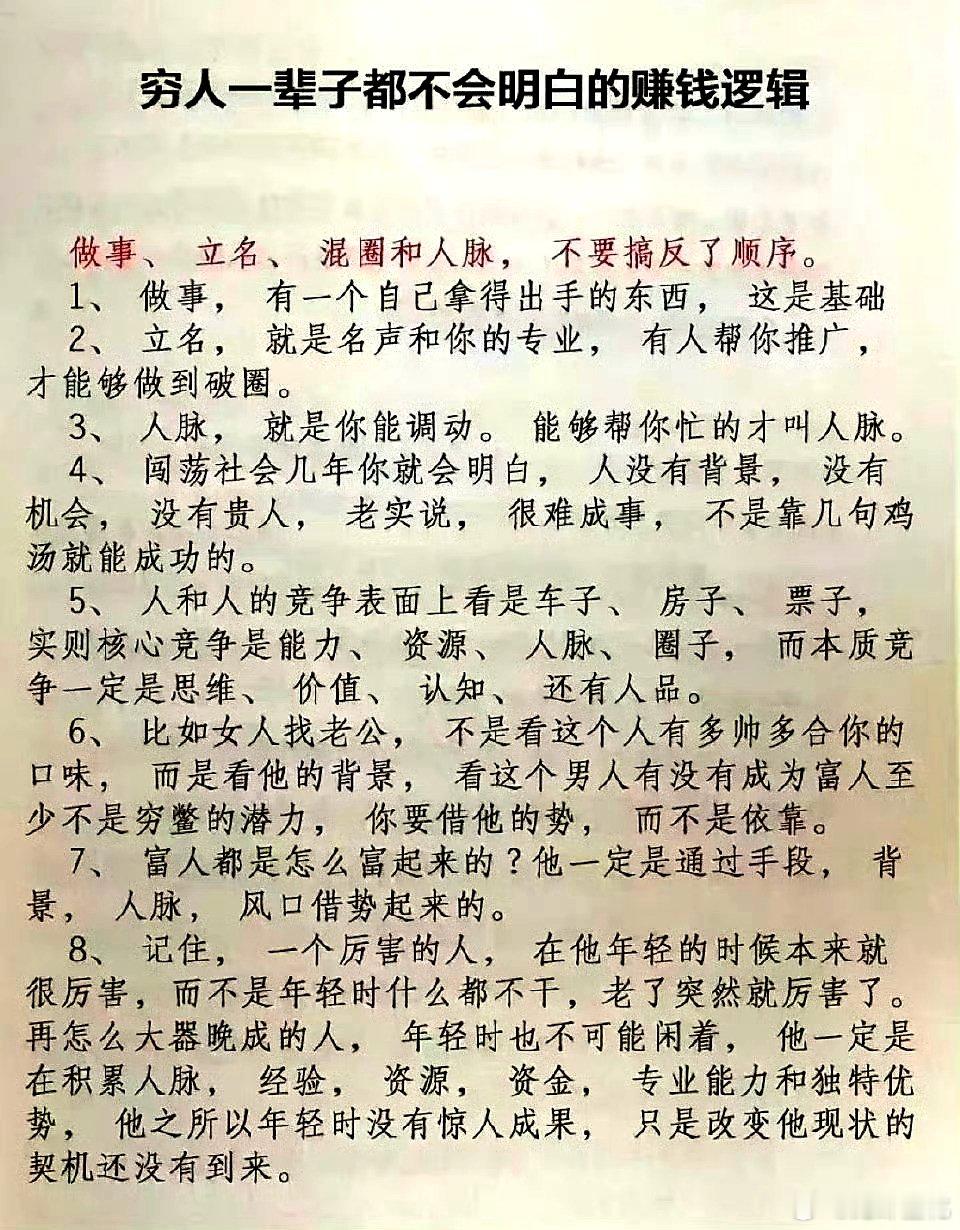 穷人一辈子都不会明白的赚钱逻辑
做事、 立名、 混圈和人脉， 不要搞反了顺序。
1、 做事， 有一个自己拿得出手的东西， 这是基础
2、 立名， 就是名声和你的专业， 有人帮你推广，
才能够做到破圈。
3、 人脉， 就是你能调动。 能够帮你忙的才叫人脉。
4、 闯荡社会几年你就会明白， 人没有背景， 没有
机会， 没有贵人， 老实说， 很难成事， 不是靠几句鸡
汤就能成功的。
5、 人和人的竞争表面上看是车子、 房子、 票子，
实则核心竞争是能力、 资源、 人脉、 圈子， 而本质竞
争一定是思维、 价值、 认知、 还有人品。
6、 比如女人找老公， 不是看这个人有多帅多合你的
口味， 而是看他的背景， 看这个男人有没有成为富人至
少不是穷鳖的潜力， 你要借他的势， 而不是依靠。
7、 富人都是怎么富起来的？他一定是通过手段， 背
景， 人脉， 风口借势起来的。
8、 记住， 一个厉害的人， 在他年轻的时候本来就
很厉害，而不是年轻时什么都不干，老了突然就厉害了。
再怎么大器晚成的人， 年轻时也不可能闲着， 他一定是
在积累人脉， 经验， 资源， 资金， 专业能力和独特优
势， 他之所以年轻时没有惊人成果， 只是改变他现状的
契机还没有到来。